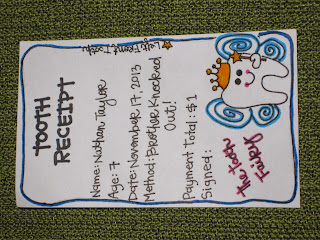 TOOTH
RECEIPT
Name: Nathan Taylor
Age: 7
Date: November 17, 2013
Method: Brother Knocked
Out!
Payment Total: $1
Signed:
the Tooth
Fairy
Left Front Tooth